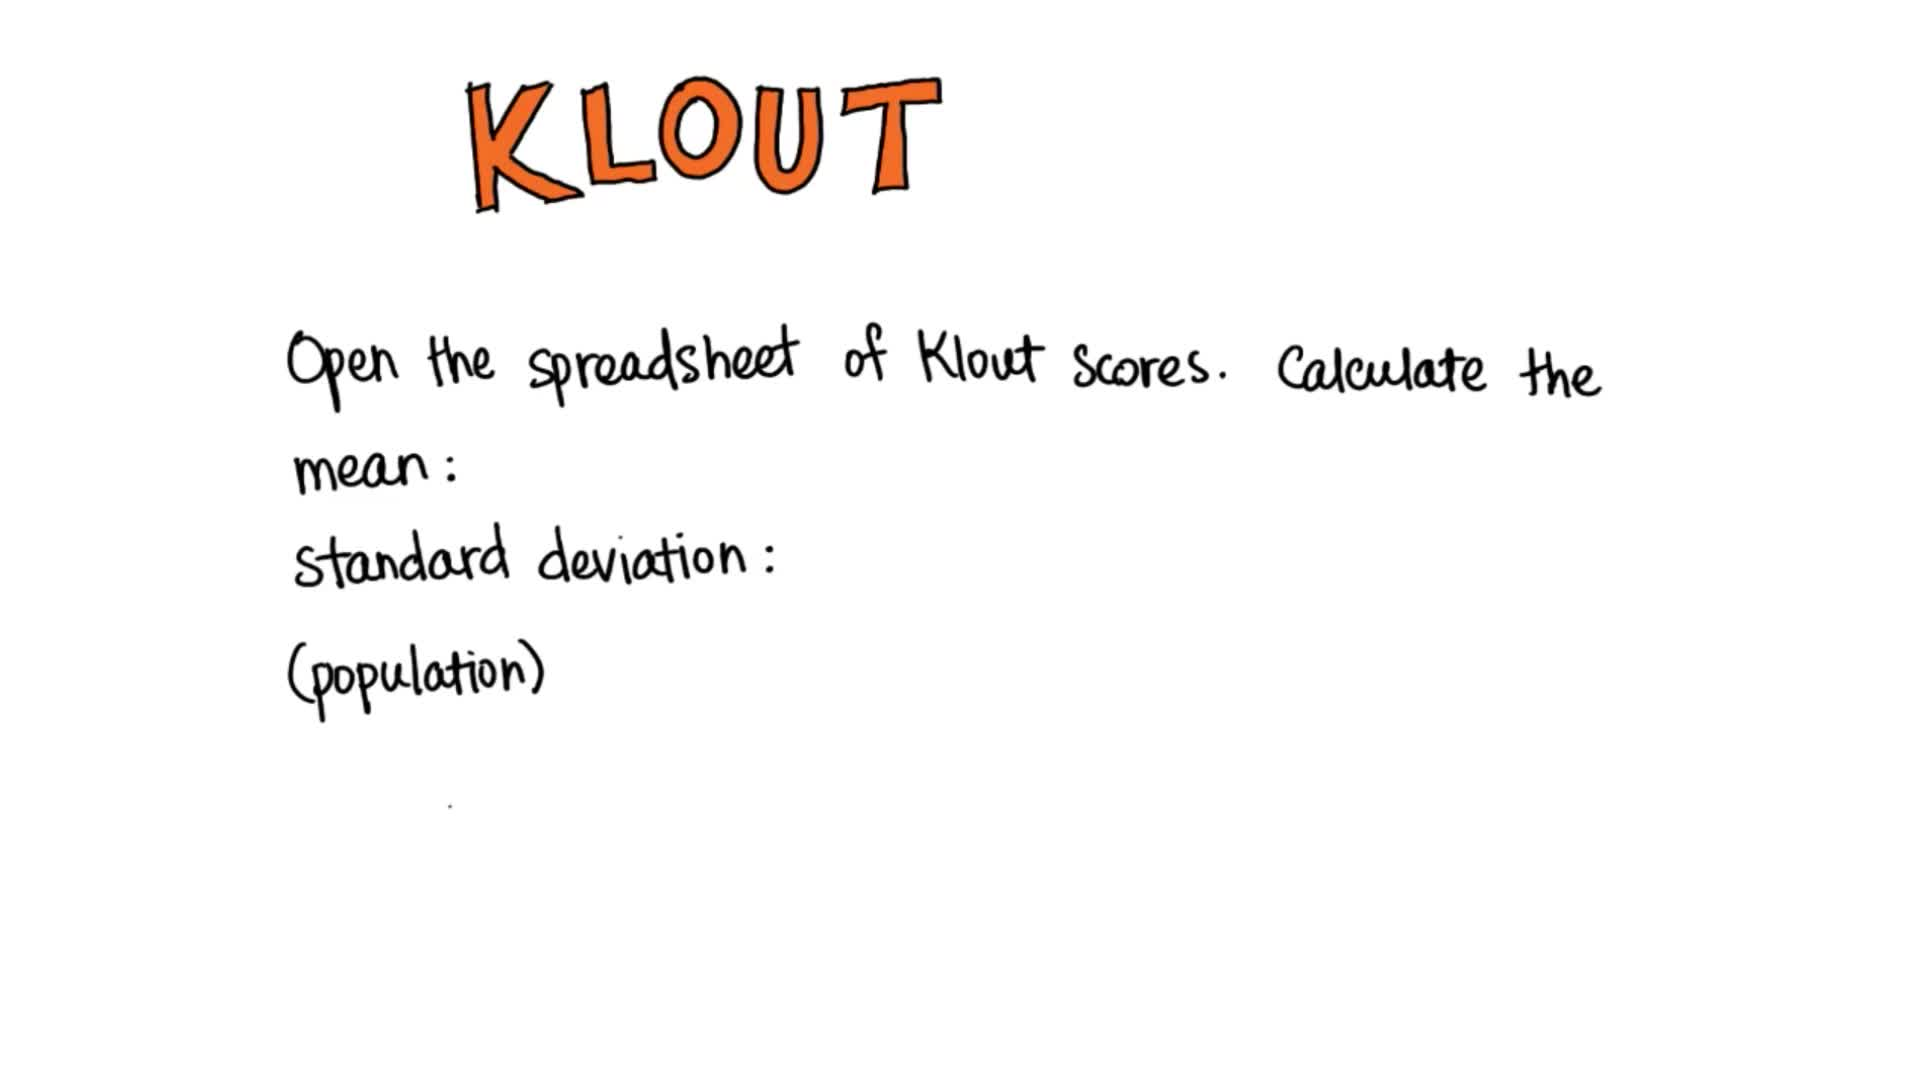 KLOUT
Open the spreadsheet of Klout scores. Calculate the
mean:
standard deviation:
(population)